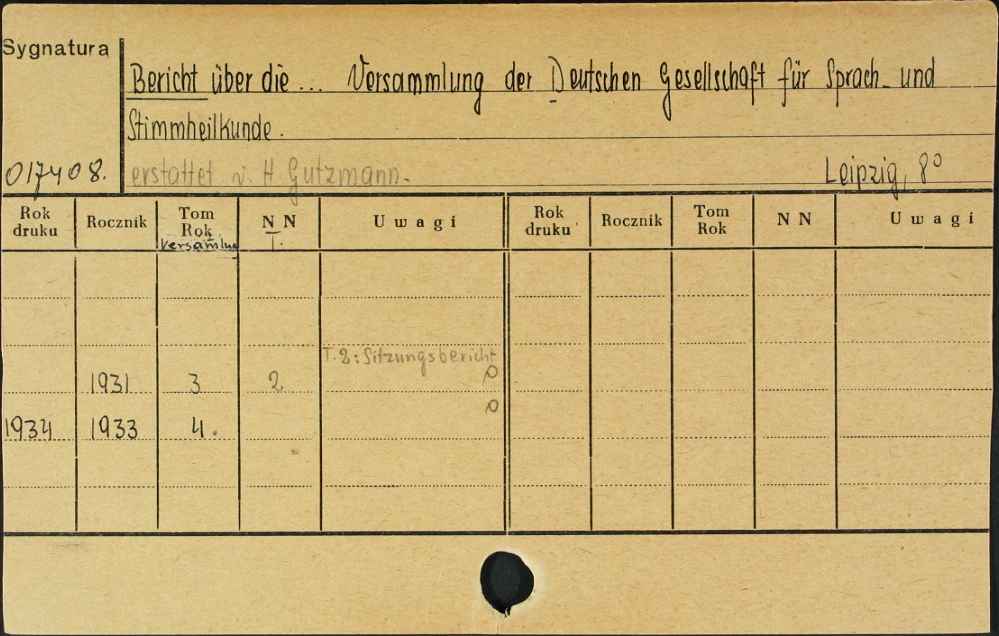 Sygnatura
Bericht über die ... Versammlung der Deutschen Gesellschaft für Sprach- und
Stimmheilkunde.
017408.
erstattet v. H. Gutzmann.
Leipzig, 8°
Rok druku Rocznik Tom Rok N N U w a g i Rok druku Rocznik Tom Rok N N U w a g i
Versamlng T.
T. 2: Sitzungsbericht
1931 3 2
1934 1933 4.